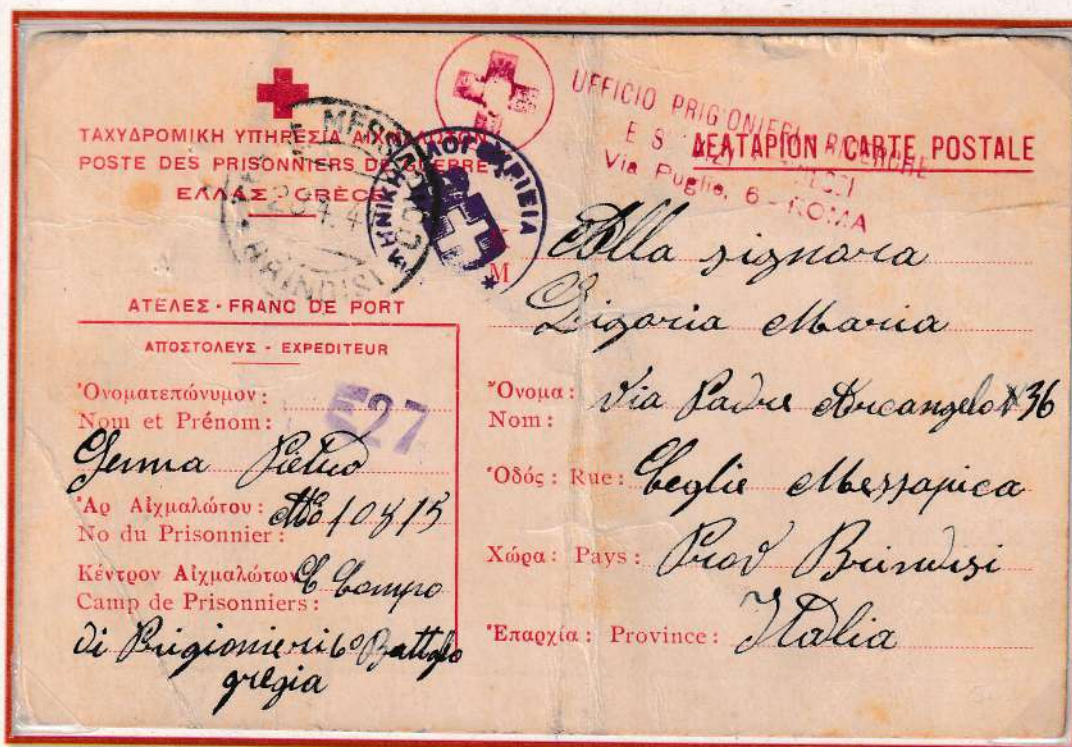 ΤΑΧΥΔΡΟΜΙΚΗ ΥΠΗΡΕΣΙΑ ΑΙΧΜΑΛΩΤΩΝ
POSTE DES PRISONNIERS DE GUERRE
ΕΛΛΑΣ - GRÈCE
UFFICIO PRIGIONIERI RICERCHE
E S
Via Puglie, 6 - ROMA
ΔΕΛΤΑΡΙΟΝ - CARTE POSTALE
ΑΤΕΛΕΣ - FRANC DE PORT
ΑΠΟΣΤΟΛΕΥΣ - EXPEDITEUR
Ὀνοματεπώνυμον:
Nom et Prénom:
E27
Gemma Pietro
Ἀρ Αἰχμαλώτου:
No du Prisonnier: No 10815
Κέντρον Αἰχμαλώτων
Camp de Prisonniers: Campo
di Prigionieri 6º
gregia
M
Alla signora
Maria
Ὄνομα:
Nom: Via Padre Arcangelo N 36
Ὁδός: Rue: Ceglie Messapica
Χώρα: Pays: Prov Brindisi
Ἐπαρχία: Province: Italia